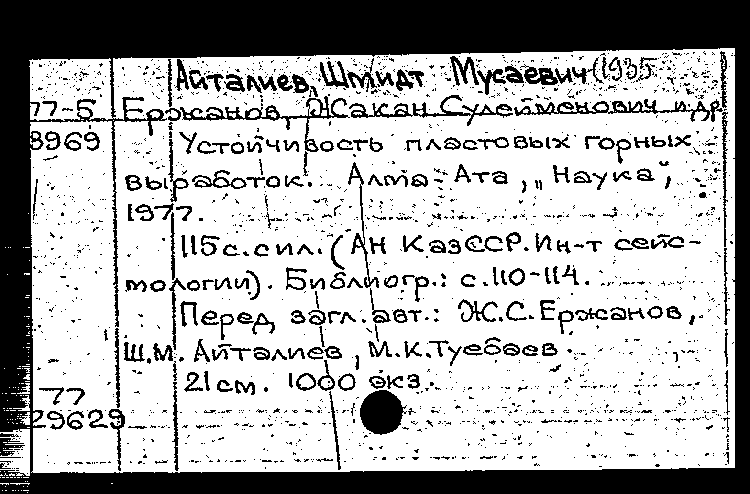 Айталиев, Шмидт Мусаевич (1935
77-5 Ержанов, Жакан Сулейменович и др
8969 Устойчивость пластовых горных
выработок. Алма-Ата, „Наука",
1977.
115 с. с ил. (АН КазССР. Ин-т сейс-
мологии). Библиогр.: с. 110-114.
Перед загл. авт.: Ж.С. Ержанов,
Ш.М. Айталиев, М.К. Туебаев.
21 см. 1000 экз.
77
29629